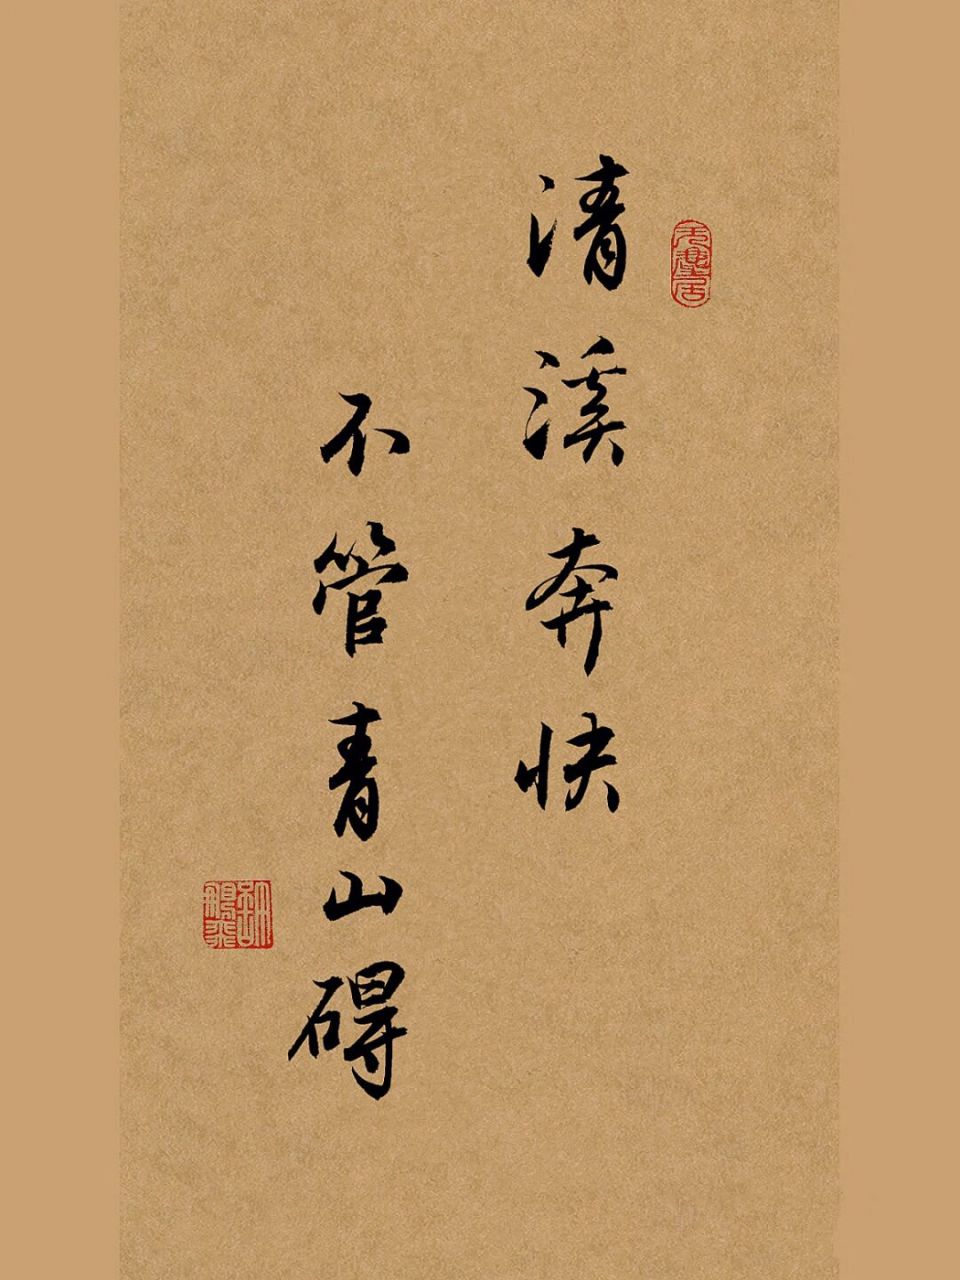 清溪奔快
不管青山碍